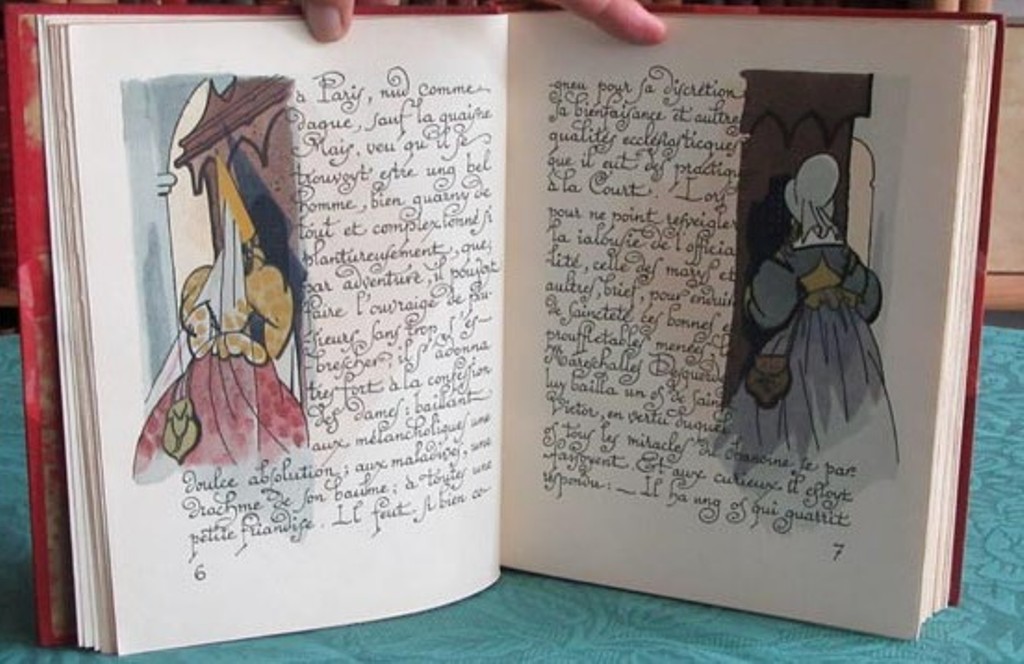 a Paris, nud comme
dague, sauf la quaisne
Mais, veu qu'il se
trouvoyt estre ung bel
homme, bien guarny de
tout et complexionné si
plantureusement, que,
par adventure, il pouvoyt
faire l'ouvraige de plu-
sieurs sans trop s'es-
brescher; il s'adonna
tres fort à la confession
des dames; baillant
aux mélancholiques une
doulce absolution; aux maladives, une
drachme de son baulme; à toutes une
petite friandise. Il feut si bien co-
6
gneu pour sa discrétion
sa bienfaisance et aultres
qualités ecclésiasticques
que il eut des practiques
à la Court. Lors
pour ne point resveigler
la ialousie de l'officia-
lité, celle des marys et
aultres, brief, pour enduire
de saincteté ces bonnes et
prouffictables menées, la
Mareschalle Desquerdes
luy bailla un os de Sainct
Victor, en vertu duquel
os tous les miracles du chanoine se par-
faisoyent. Et aux curieux il estoyt
respondu: — Il ha ung os qui guarrit
7